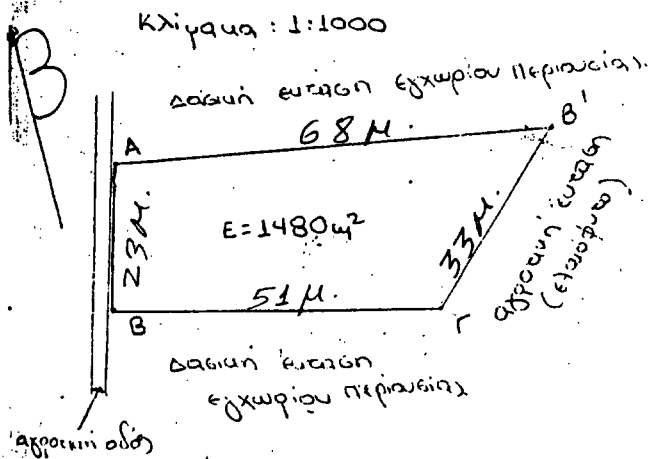 Κλίμακα : 1:1000
B
Δασική έκταση εγχωρίου Περιουσίας.
68 μ.
A
B'
23 μ.
E=1480 m²
33 μ.
αγροτική έκταση
(ελαιόφυτο)
51 μ.
B
Γ
Δασική έκταση
εγχωρίου Περιουσίας
αγροτική οδός